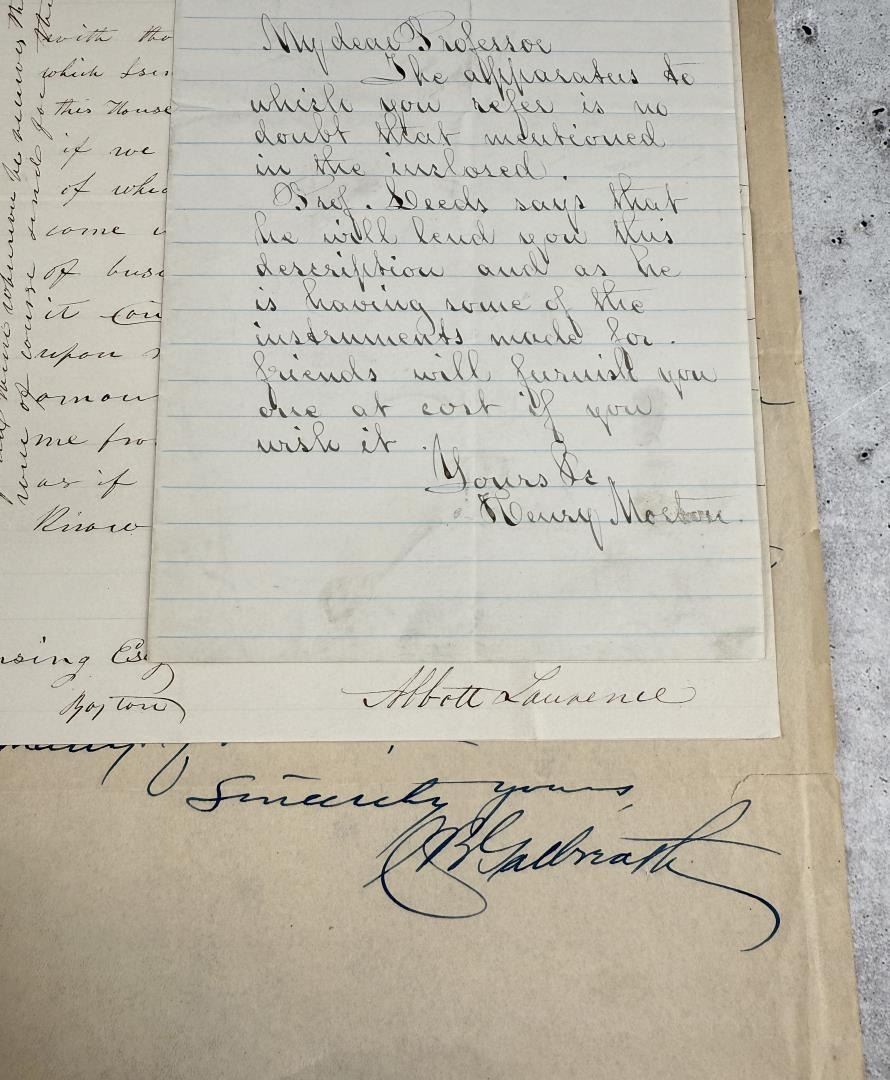 My dear Professor
The apparatus to
which you refer is no
doubt that mentioned
in the inclosed.
Prof. Leeds says that
he will lend you this
description and as he
is having some of the
instruments made for
friends will furnish you
one at cost if you
wish it.
Yours &c
Henry Morton.
with tho
which I sen
this House
if we
of whic
come
of busi
it Con
upon
amoun
me fro
as if
Know
nsing Esq
Boston
Abbott Lawrence
Sincerely yours,
CB Galbreath